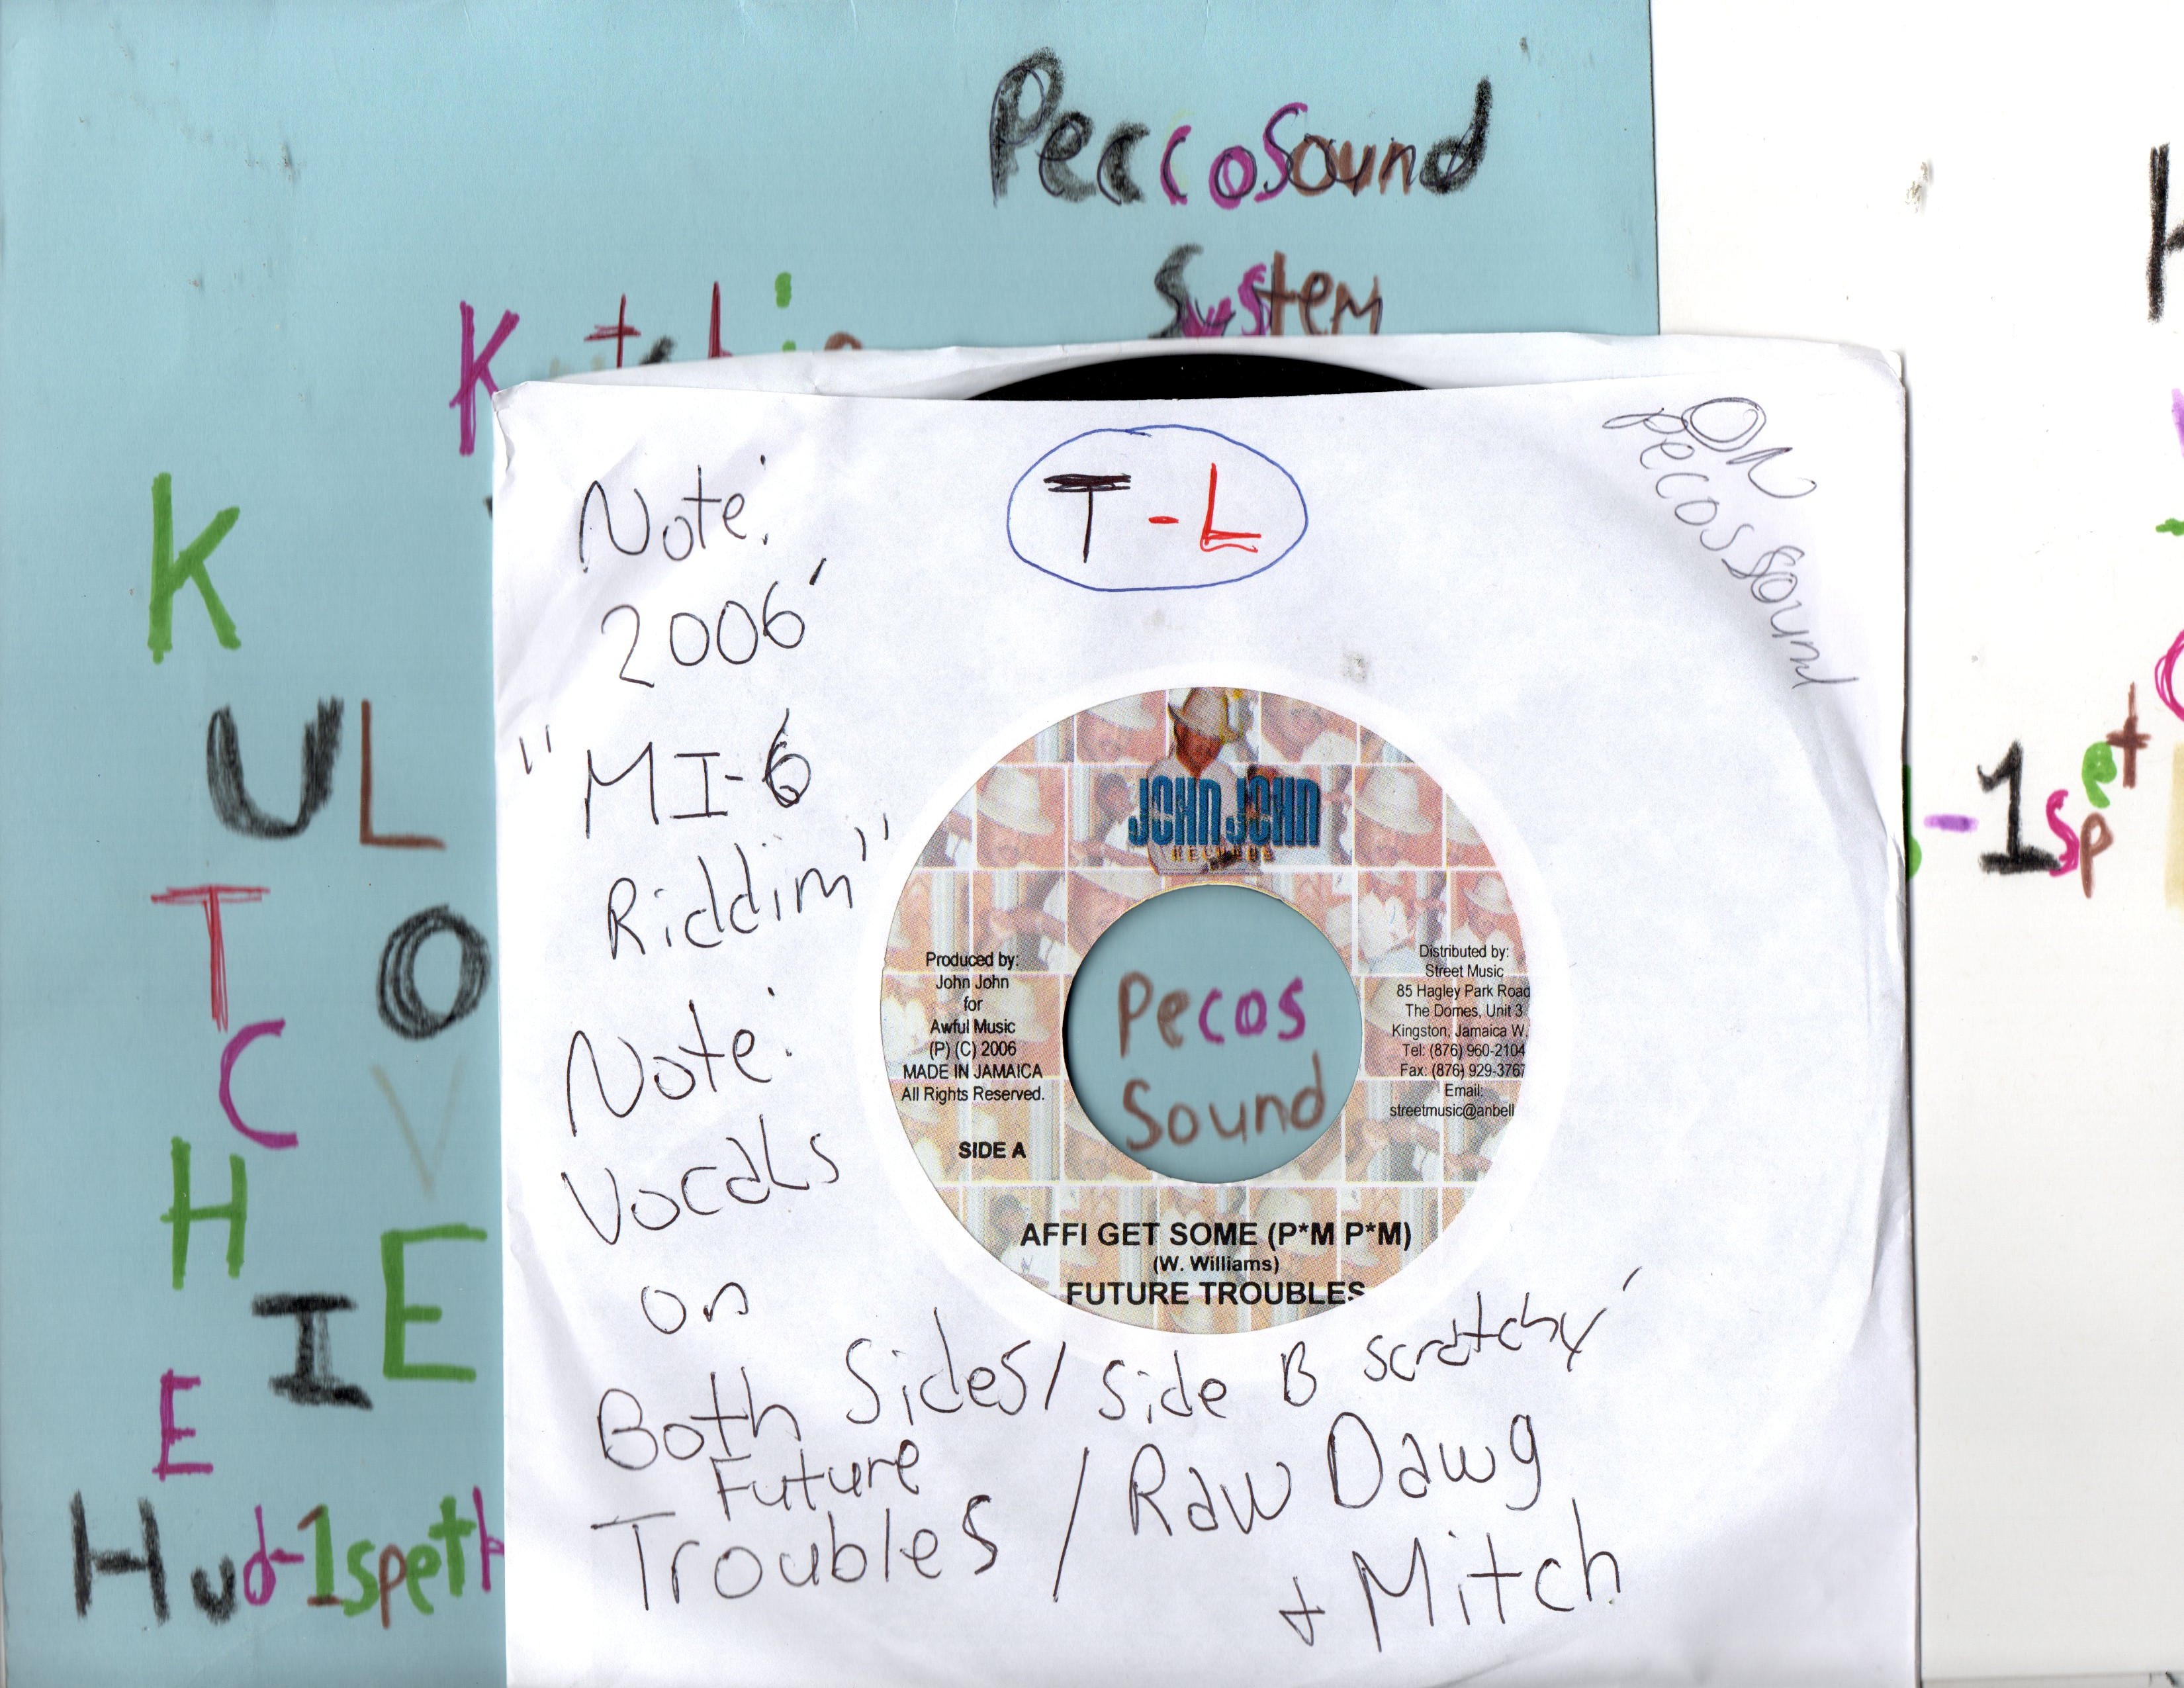 PeccoSound
System
K
T-L
ON
PecosSound
Note:
2006'
"MI-6
Riddim"
Note:
Vocals
on
Both Sides/ Side B scratchy'
Future
Troubles / Raw Dawg
+ Mitch
JOHN JOHN
RECORDS
Produced by:
John John
for
Awful Music
(P) (C) 2006
MADE IN JAMAICA
All Rights Reserved.
SIDE A
Distributed by:
Street Music
85 Hagley Park Road
The Domes, Unit 3
Kingston, Jamaica W.
Tel: (876) 960-2104
Fax: (876) 929-3767
Email:
streetmusic@anbell
Pecos
Sound
AFFI GET SOME (P*M P*M)
(W. Williams)
FUTURE TROUBLES
KUTCHIE
LOVE
Hud-1speth
-1spet